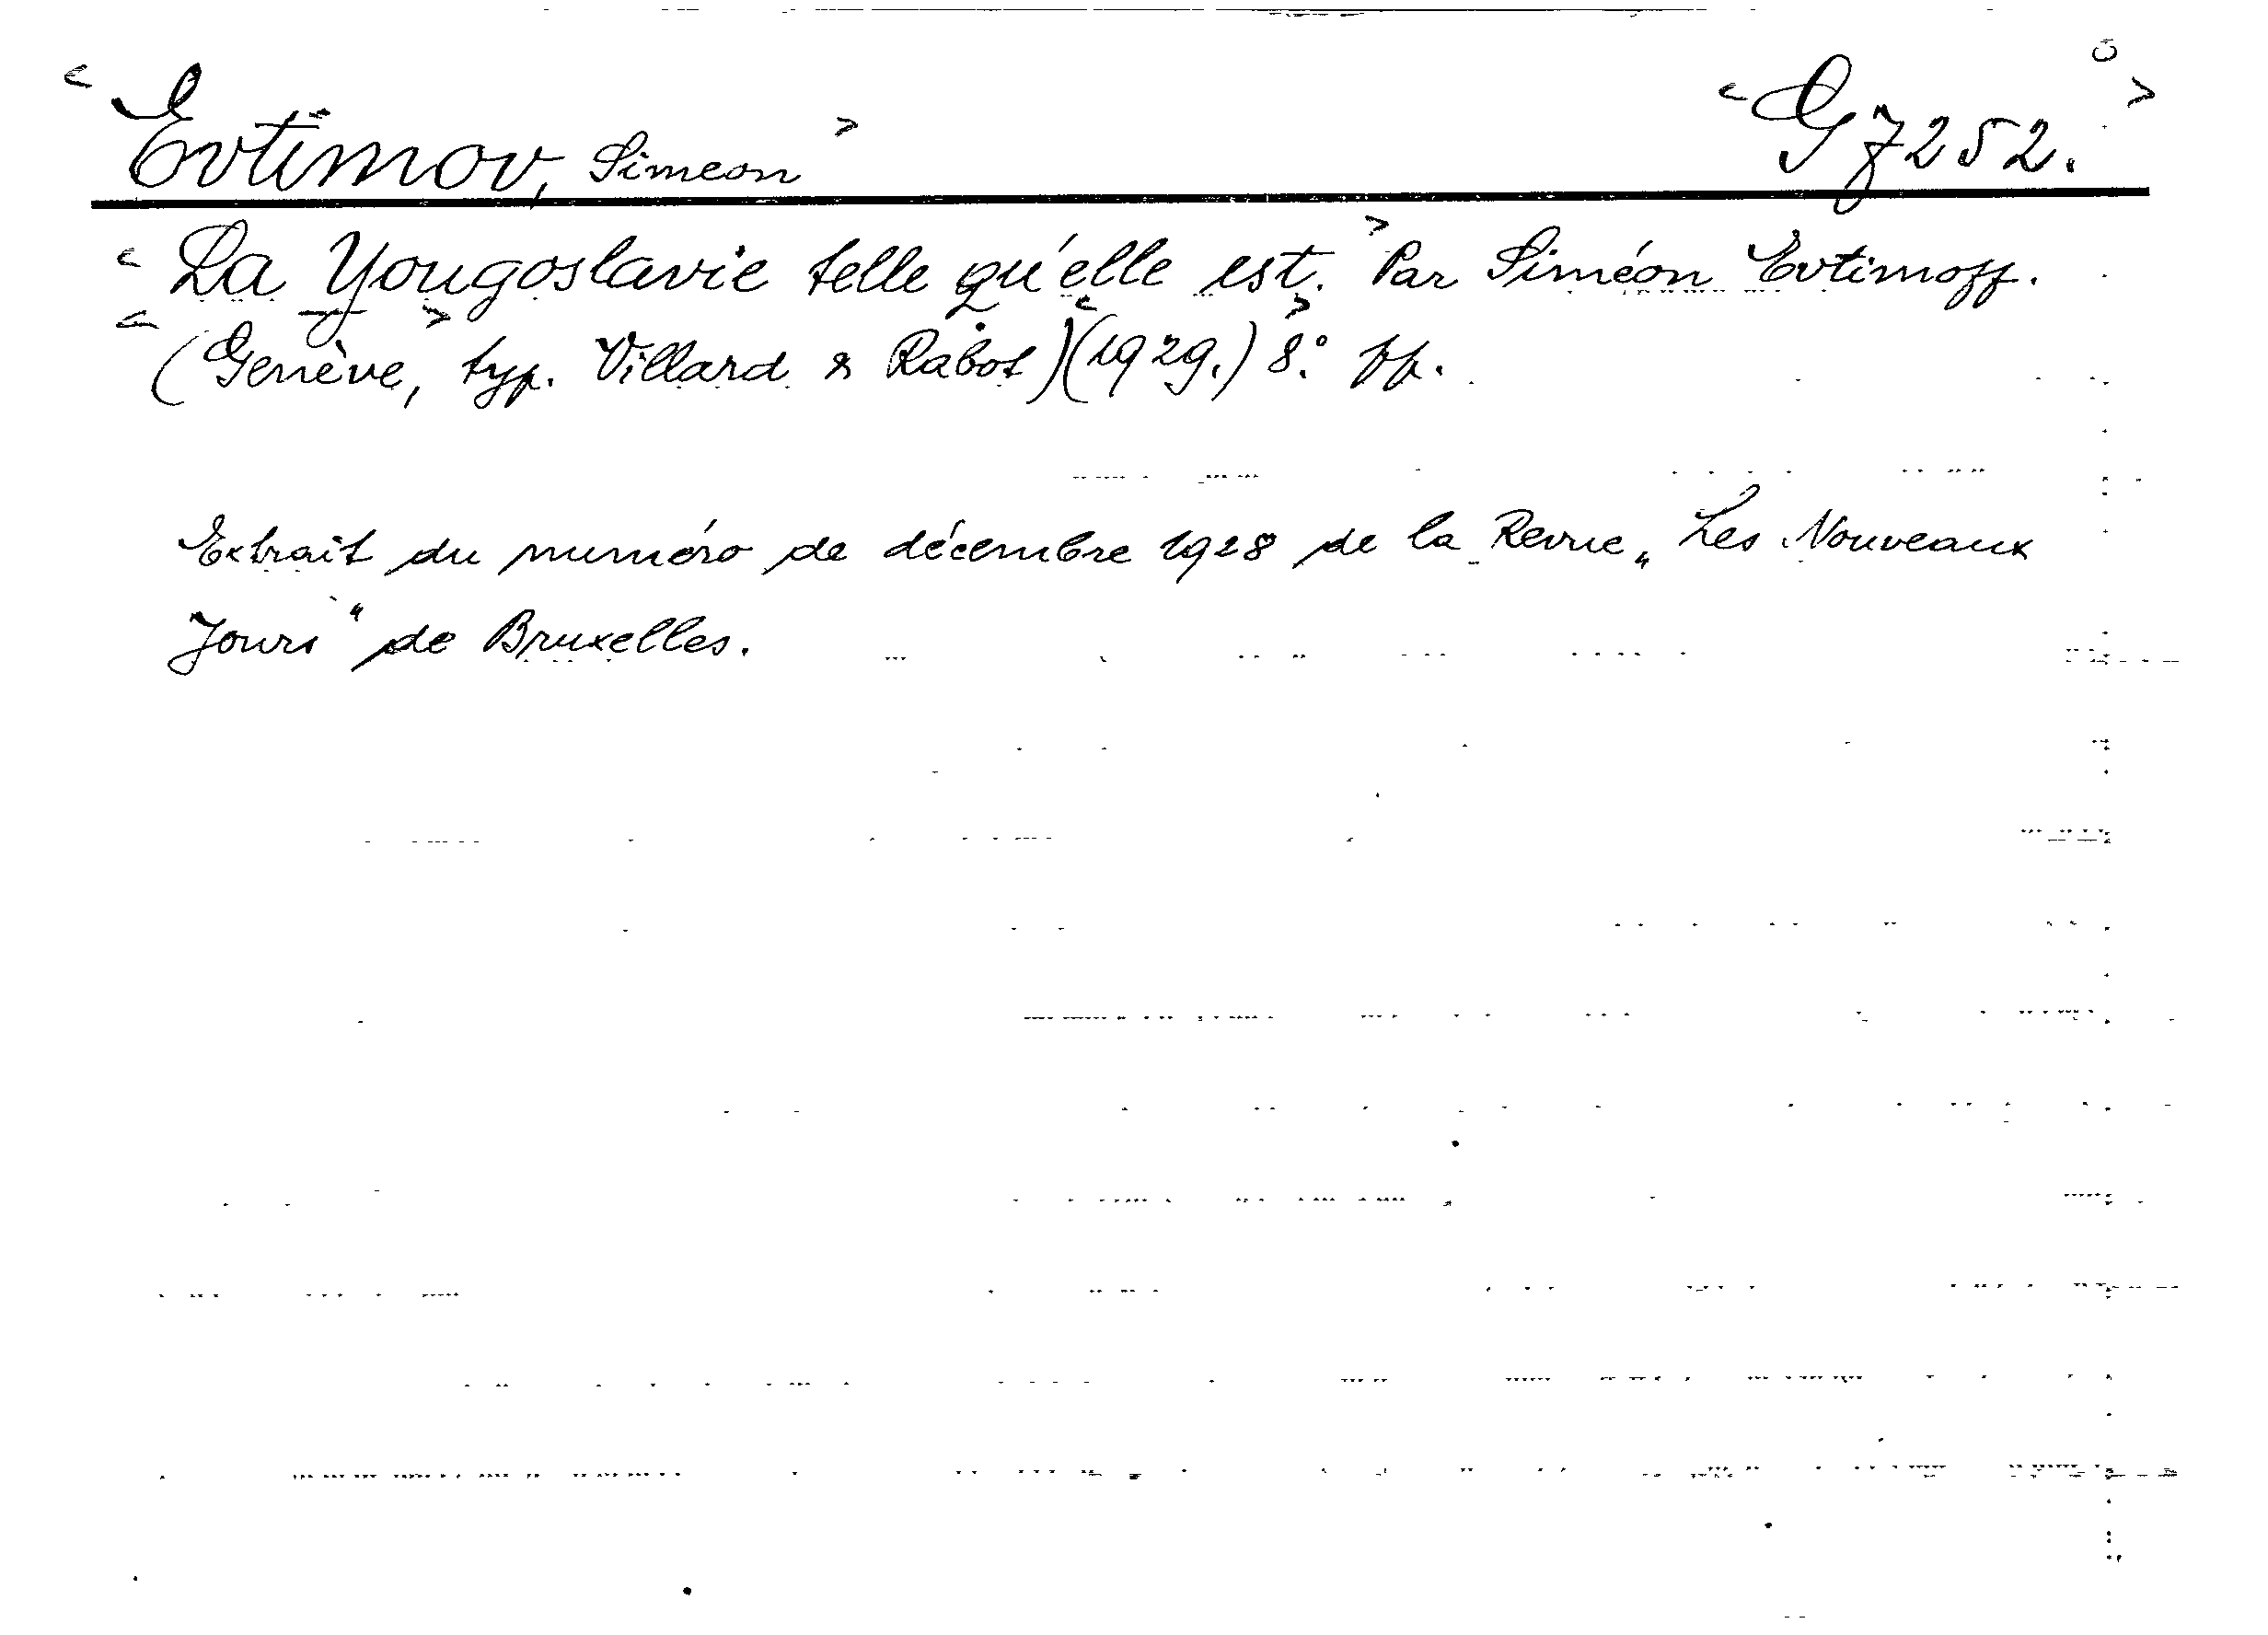 < Evtimov, Simeon > < G 7252. >
< La Yougoslavie telle qu'elle est. > Par Siméon Evtimoff.
< (Genève, > typ. Villard & Rabot) < (1929.) > 8.° pp.
Extrait du numéro de décembre 1928 de la Revue „Les Nouveaux
Jours“ de Bruxelles.